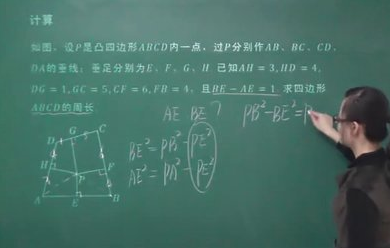 计算
如图,设P是凸四边形ABCD内一点,过P分别作AB、BC、CD、
DA的垂线,垂足分别为E、F、G、H 已知AH=3,HD=4,
DG=1,GC=5,CF=6,FB=4,且BE-AE=1 求四边形
ABCD的周长
AE BE
PB²-BE²=
BE²=PB²-PE²
AE²=PA²-PE²
D G C
H P F
A E B